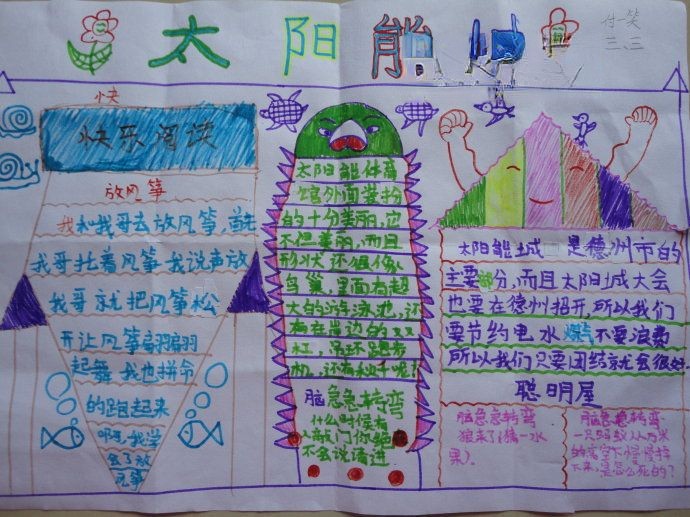 太阳能
付一笑
三、三
快
快乐阅读
放风筝
我和我哥去放风筝,首先
我哥扯着风筝我说声放
我哥就把风筝松
开让风筝翩翩
起舞我也拼命
的跑起来
啊我学
会了放
风筝
太阳能体育
馆外面装扮
的十分美丽,它
不但美丽,而且
形状还很像
鸟巢,里面有超
大的游泳池,还
有在里边的双
杠,吊环跑步
机,还有秋千呢?
脑急急转弯
什么时候有
人敲门你绝
不会说请进
太阳能城 是德州市的
主要部分,而且太阳城大会
也要在德州招开,所以我们
要节约电水 不要浪费
所以我们只要团结就会很好
聪明屋
脑急急转弯
狼来了(猜一水
果)。
脑急急转弯
一只蚂蚁从万米
的高空下慢慢掉
下来,是怎么死的?